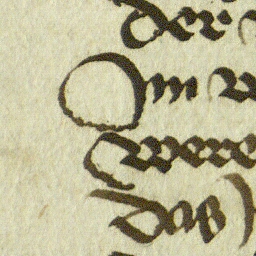 der
Im
were
das